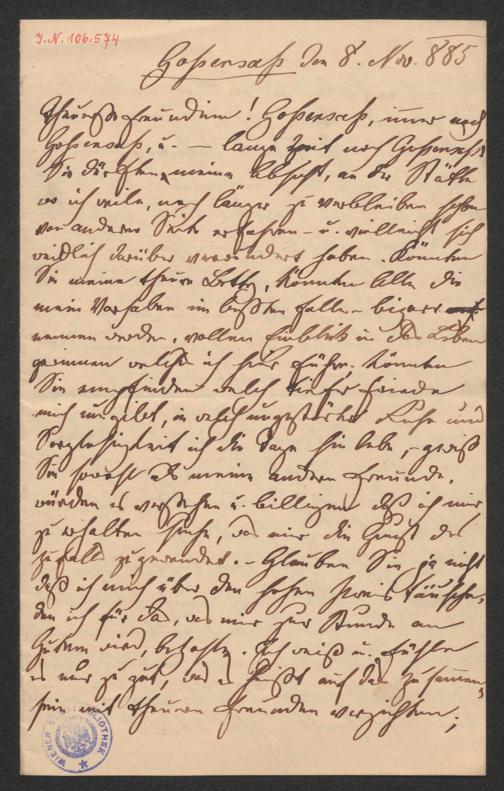 J.N. 106.574
Gossensaß den 8. Nov. 885
Theuerste Freundin! Gossensaß, immer noch
Gossensaß, u. – lange Zeit noch Gossensaß!
Sie dürften meine Absicht, an der Stätte
wo ich weile, noch länger zu verbleiben schon
von anderer Seite erfahren – u. vielleicht sich
weidlich darüber verwundert haben. Könnten
Sie meine theure Betty, könnten Alle die
mein Vorhaben im besten Falle – bizarr
nennen werden, vollen Einblick in das Leben
gewinnen welches ich hier führe. Könnten
Sie empfinden welch tiefer Friede
mich umgibt, in welch ungestörter Ruhe und
Sorglosigkeit ich die Tage hin lebe, – gewiß
Sie sowohl als meine anderen Freunde,
würden es verstehen u. billigen daß ich mir
zu erhalten suche, was mir die Gunst des
Zufalls zugewendet. – Glauben Sie ja nicht
daß ich mich über den hohen Preis täusche,
den ich für Das, was mir zur Stunde an
Gutem wird, bezahle. Ich weiß u. fühle
es nur zu gut, was es heißt auf das Zusammen-
sein mit theuren Freunden verzichten;
WIENER BIBLIOTHEK